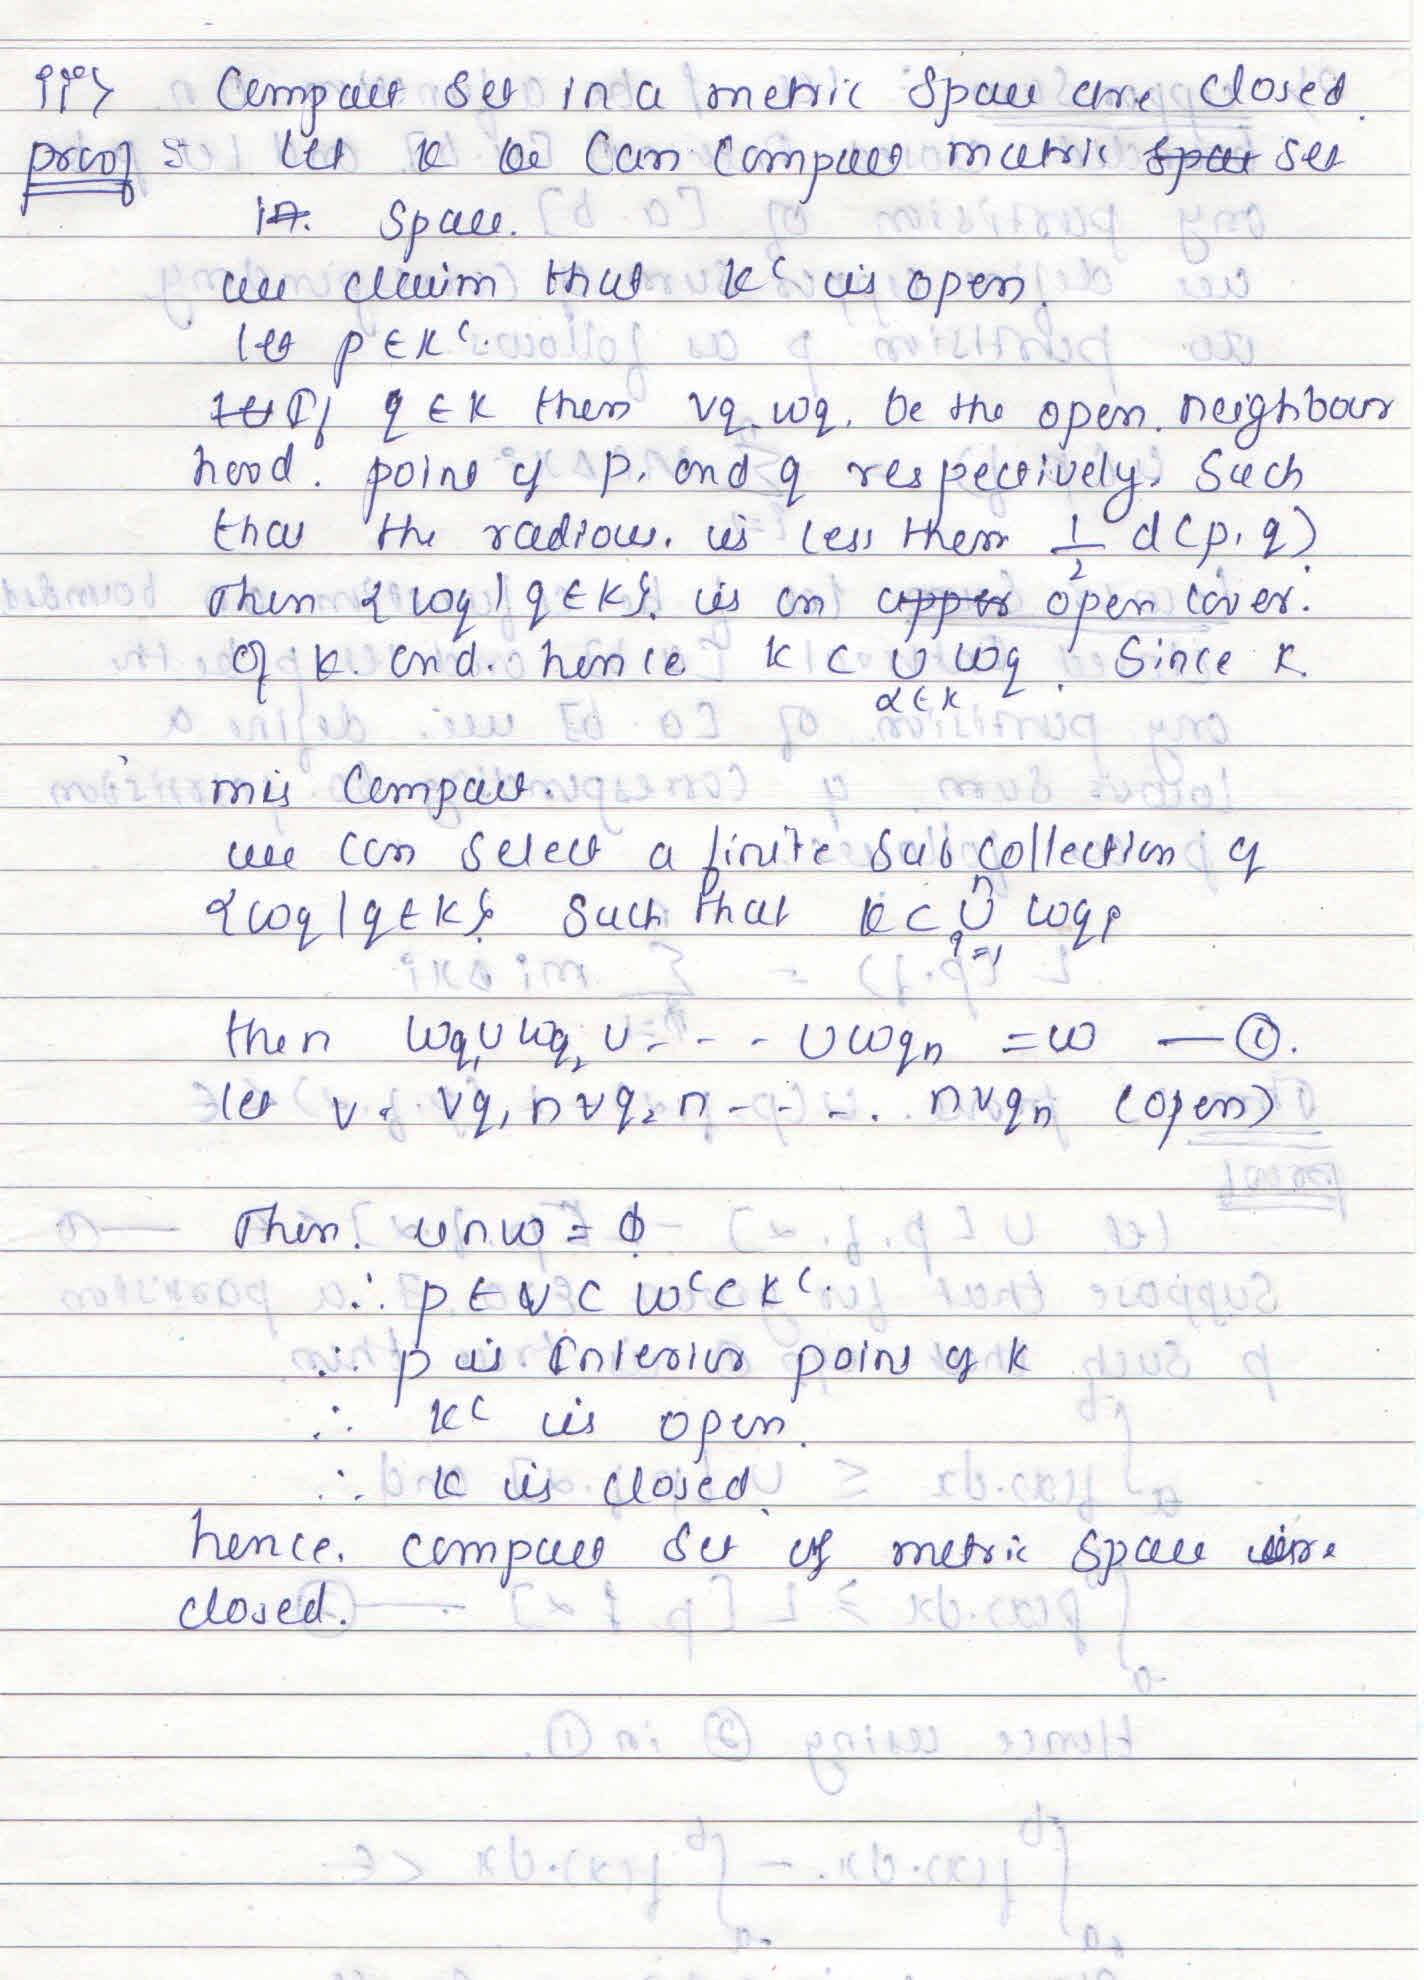 iii> Compact set in a metric space are closed.
proof :- let K be can compact metric space set
in. space.
we claim that Kᶜ is open.
let p ∈ Kᶜ.
let If q ∈ K then Vq, Wq, be the open neighbour
hood. point of p, and q respectively. Such
that the radious, is less then 1/2 d(p, q).
Then {Wq | q ∈ K}. is an upper open cover.
of K. and. hence K ⊂ ∪ Wq. Since K.
α ∈ K
is Compact.
we can select a finite sub collection of
{Wq | q ∈ K}. Such that K ⊂ ∪ⁿᵢ₌₁ Wqᵢ
then Wq₁ ∪ Wq₂ ∪ - - - ∪ Wqₙ = W — ①.
let V = Vq₁ ∩ Vq₂ ∩ - - - . ∩ Vqₙ (open)
Then. V ∩ W = ϕ
∴ p ∈ V ⊂ Wᶜ ⊂ Kᶜ.
∴ p is Interior point of K
∴ Kᶜ is open.
∴ K is closed.
hence. compact set of metric space are.
closed.